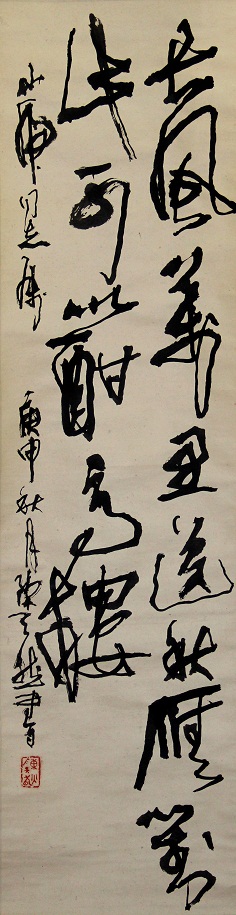 長風萬里送秋雁對
此可以酣高樓
同志属 庚申秋月陳天然書